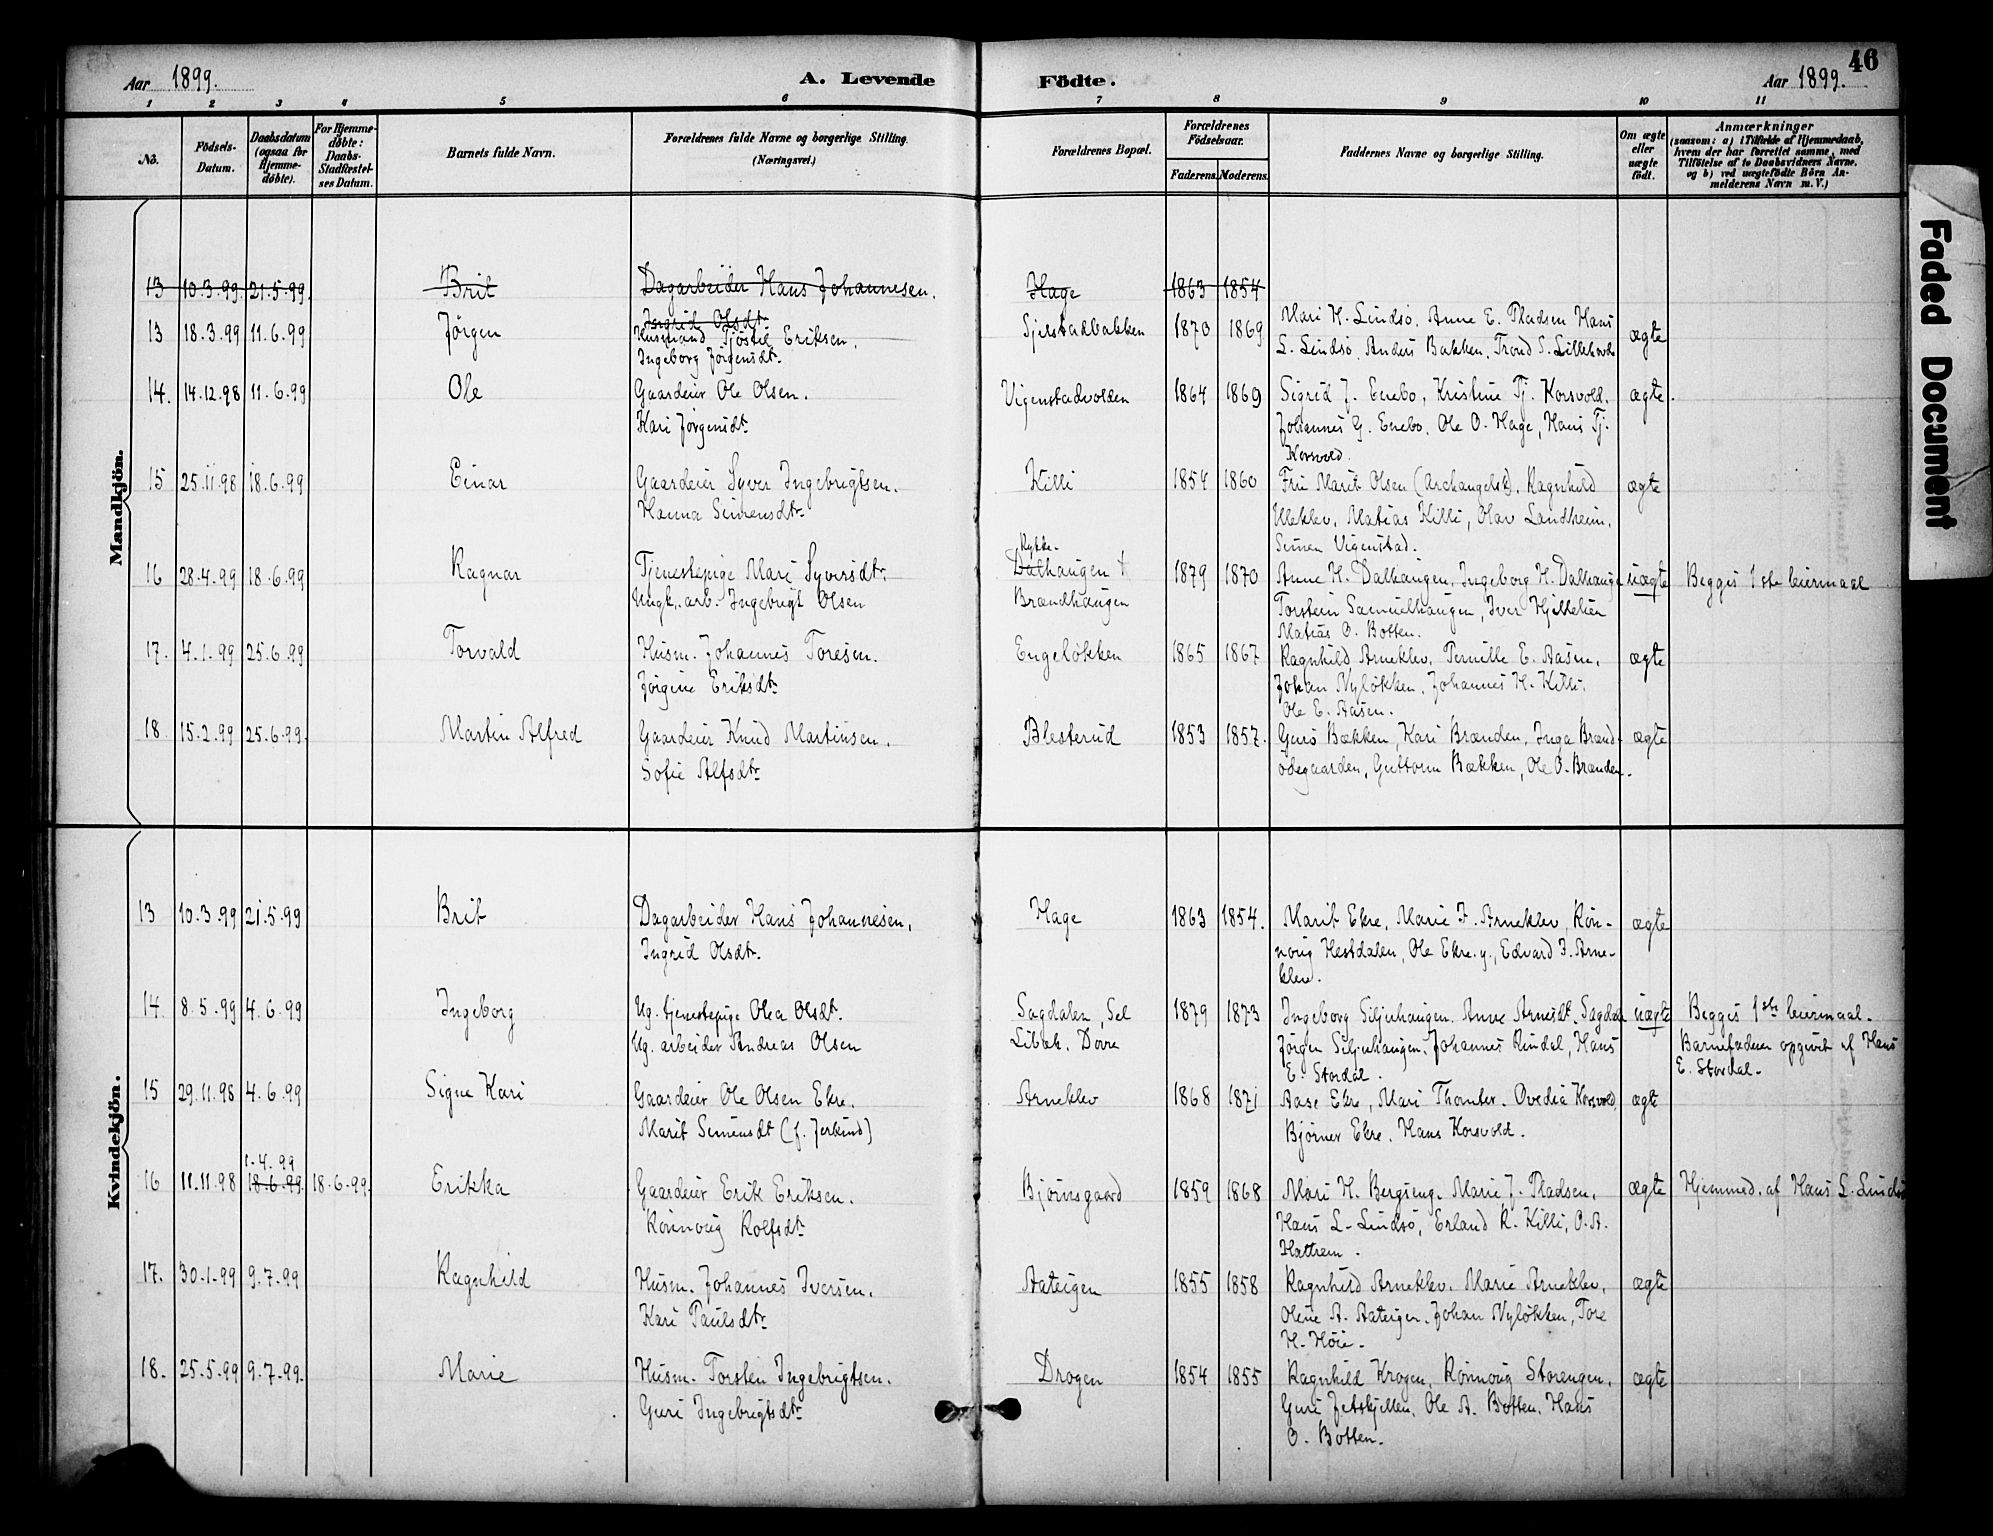 46
Aar 1899.
A. Levende Födte.
Aar 1899.
1 2 3 4 5 6 7 8 9 10 11
No.
Födsels-Datum.
Daabsdatum (ogsaa for Hjemme-döbte).
For Hjemme-döbte: Daabs-Stadfæstel-ses Datum.
Barnets fulde Navn.
Forældrenes fulde Navne og borgerlige Stilling.
(Næringsvei.)
Forældrenes Bopæl.
Forældrenes Födselsaar.
Faderens. Moderens.
Faddernes Navne og borgerlige Stilling.
Om ægte eller uægte födt.
Anmærkninger
(saasom: a) i Tilfælde af Hjemmedaab, hvem der har forrettet samme, med Tilföielse af to Daabsvidners Navne, og b) ved uægtefödte Börn An-melderens Navn m. V.)
Mandkjön.
13 10.3.99 21.5.99. Brit Dagarbeider Hans Johannesen. Hage 1863 1854
Ingrid Olsdt.
13 18.3.99 11.6.99 Jørgen Husmand Tjøstil Eriksen. Sjelstadbakken 1870 1869 Mari H. Lindsø, Anne E. Pladsen Hans ægte
Ingeborg Jørgensdt. L. Lindsø, Anders Bakken, Trond S.
14. 14.12.98 11.6.99 Ole Gaardeier Ole Olsen. Vigenstadvolden 1864 1869 Sigrid J. Enebo, Kristine Tj. Korsvold. ægte.
Kari Jørgensdt. Johannes G. Enebo, Ole O. Hage, Hans Tj.
Korsvold.
15 25.11.98 18.6.99 Einar Gaardeier Syver Ingebrigtsen. Killi 1854 1860 Fru Marit Olsen (Archangelsk), Ragnhild ægte
Hanna Simensdtr. Uleklev, Matias Killi, Olav Landheim,
Simen Vigenstad.
Rykke-
16 28.4.99 18.6.99 Ragnar Tjenestepige Mari Syversdtr. Dalhaugen 1879 1870 Anne H. Dalhaugen, Ingeborg H. Dalhauge uægte Begges 1ste leiermaal
Ungk. arb. Ingebrigt Olsen Brændhaugen Torstein Samuelhaugen, Iver Hjeltelien
Matias O. Botten.
17. 4.1.99 25.6.99 Torvald Husm. Johannes Toresen. Engeløkken 1865 1867 Ragnhild Arneklev, Pernille E. Aasen, ægte
Jørgine Eriksdtr. Johan Nyløkken, Johannes H. Killi,
Ole E. Aasen.
18 15.2.99 25.6.99. Martin Alfred Gaardeier Knud Martinsen. Blesterud 1853 1857. Guro Bækken, Kari Brænden, Inga Brænd- ægte
Sofie Alfsdtr. ødegaarden, Guttorm Bækken, Ole O. Brænden.
Kvindekjön.
13 10.3.99 21.5.99 Brit Dagarbeider Hans Johannesen, Hage 1863 1854. Marit Ekre, Marie J. Arneklev, Røn- ægte
Ingrid Olsdt. noug Hestdalen, Ole Ekre y., Edvard J. Arne-
klev.
14. 8.5.99 4.6.99 Ingeborg Ug. tjenestepige Olea Olsdt. Sagdalen, Sel 1879 1873 Ingeborg Siljehaugen, Anne Arnesdt. Sagdal uægte Begges 1ste leiermaal.
Ug. arbeider Andreas Olsen Dovre Jørgen Siljehaugen, Johannes Rindal, Hans Barnefaderen opgivet af Hans
E. Stordal. E. Stordal.
15 29.11.98 4.6.99 Signe Kari Gaardeier Ole Olsen Ekre. Arneklev 1868 1871 Aase Ekre, Mari Thomter, Ovedia Korsvold, ægte
Marit Simensdt (f. Jerkind) Bjørner Ekre, Hans Korsvold.
1.4.99
16 11.11.98 18.6.99 18.6.99. Erikka Gaardeier Erik Eriksen. Bjørnsgaard 1859 1868 Mari H. Bergseng, Marie J. Pladsen, ægte Hjemmed. af Hans L. Lindsø
Rønnoug Rolfsdtr. Hans L. Lindsø, Erland R. Killi, O.A.
Hattrem.
17. 30.1.99 9.7.99 Ragnhild Husm. Johannes Iversen. Aateigen 1855 1858 Ragnhild Arneklev, Marie Arneklev, ægte
Kari Paulsdtr. Oline A. Aateigen, Johan Nyløkken, Tore
H. Høie.
18. 25.5.99 9.7.99. Marie Husm. Torsten Ingebrigtsen. Drogen 1854 1855 Ragnhild Krogen, Rønnoug Storengen, ægte
Guri Ingebrigtsdtr. Guri Ole A. Botten, Hans
O. Botten.
Faded Document